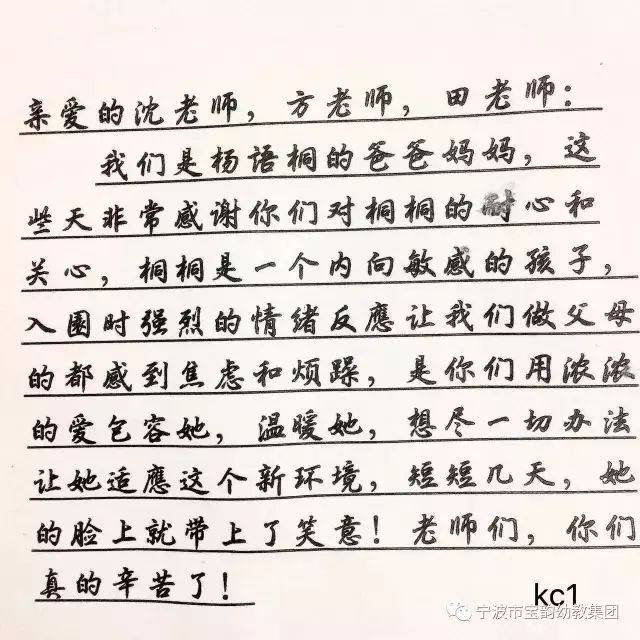 亲爱的沈老师，方老师，田老师：
我们是杨语桐的爸爸妈妈，这
些天非常感谢你们对桐桐的耐心和
关心，桐桐是一个内向敏感的孩子，
入園时强烈的情绪反應让我们做父母
的都感到焦虑和烦躁，是你们用浓浓
的爱包容她，温暖她，想尽一切办法
让她适應这个新环境，短短几天，她
的脸上就带上了笑意！老师们，你们
真的辛苦了！
kc1
宁波市宝韵幼教集团